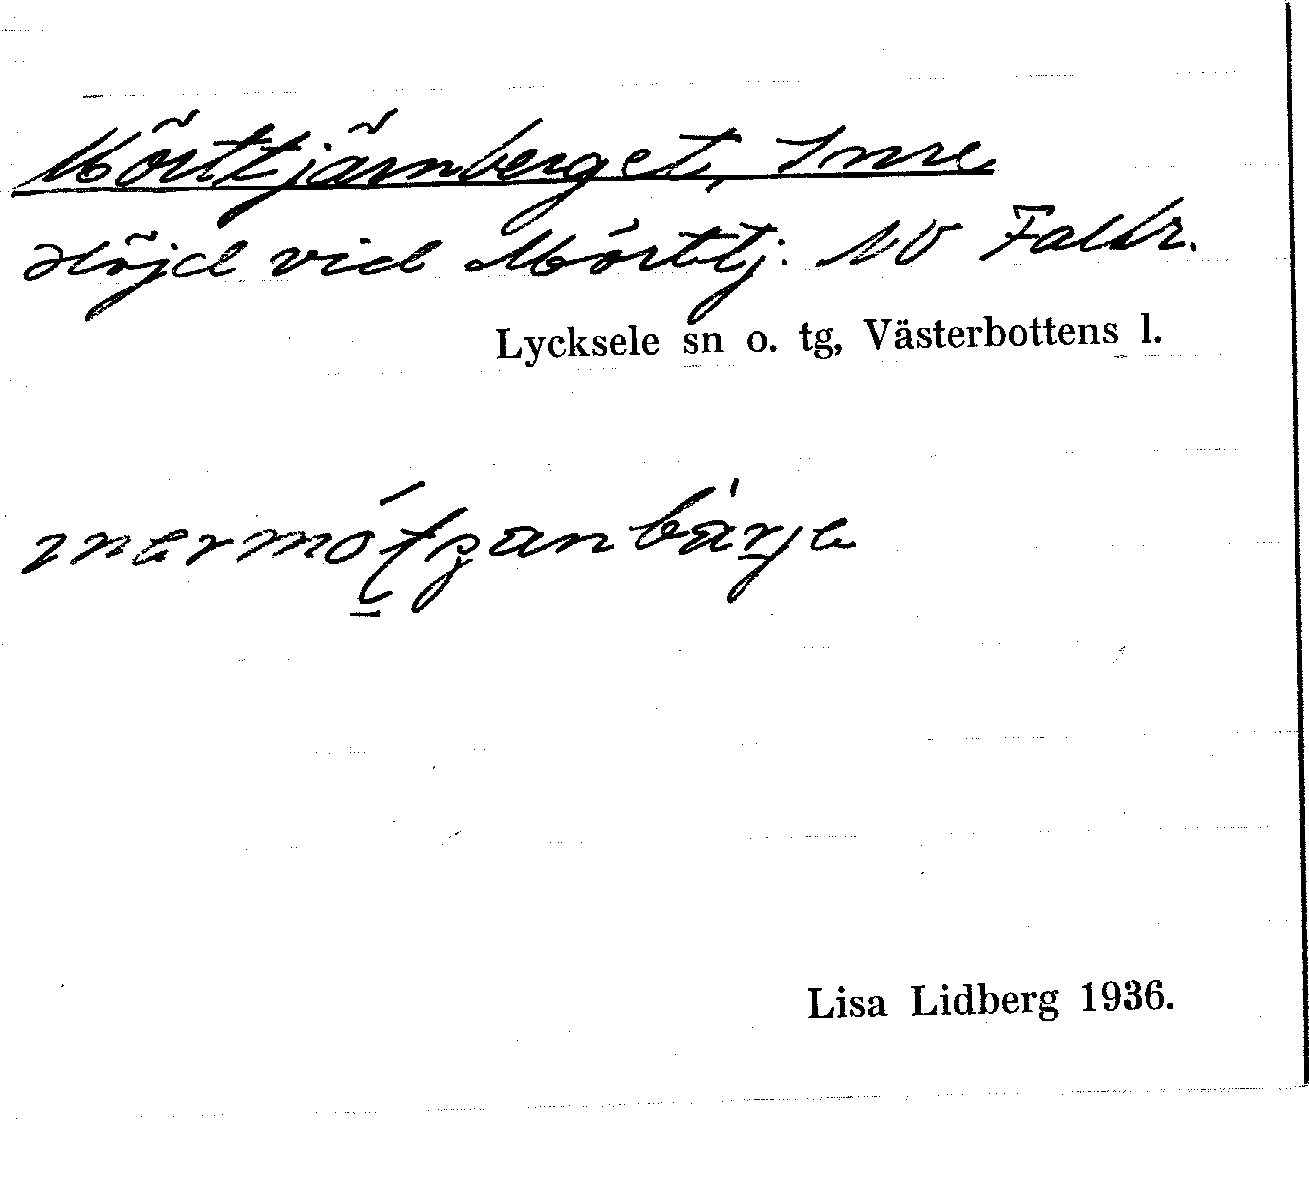 Mörttjärnberget, Inre
Höjd vid Mörttj. NV Falltr.
Lycksele sn o. tg, Västerbottens l.
Lisa Lidberg 1936.